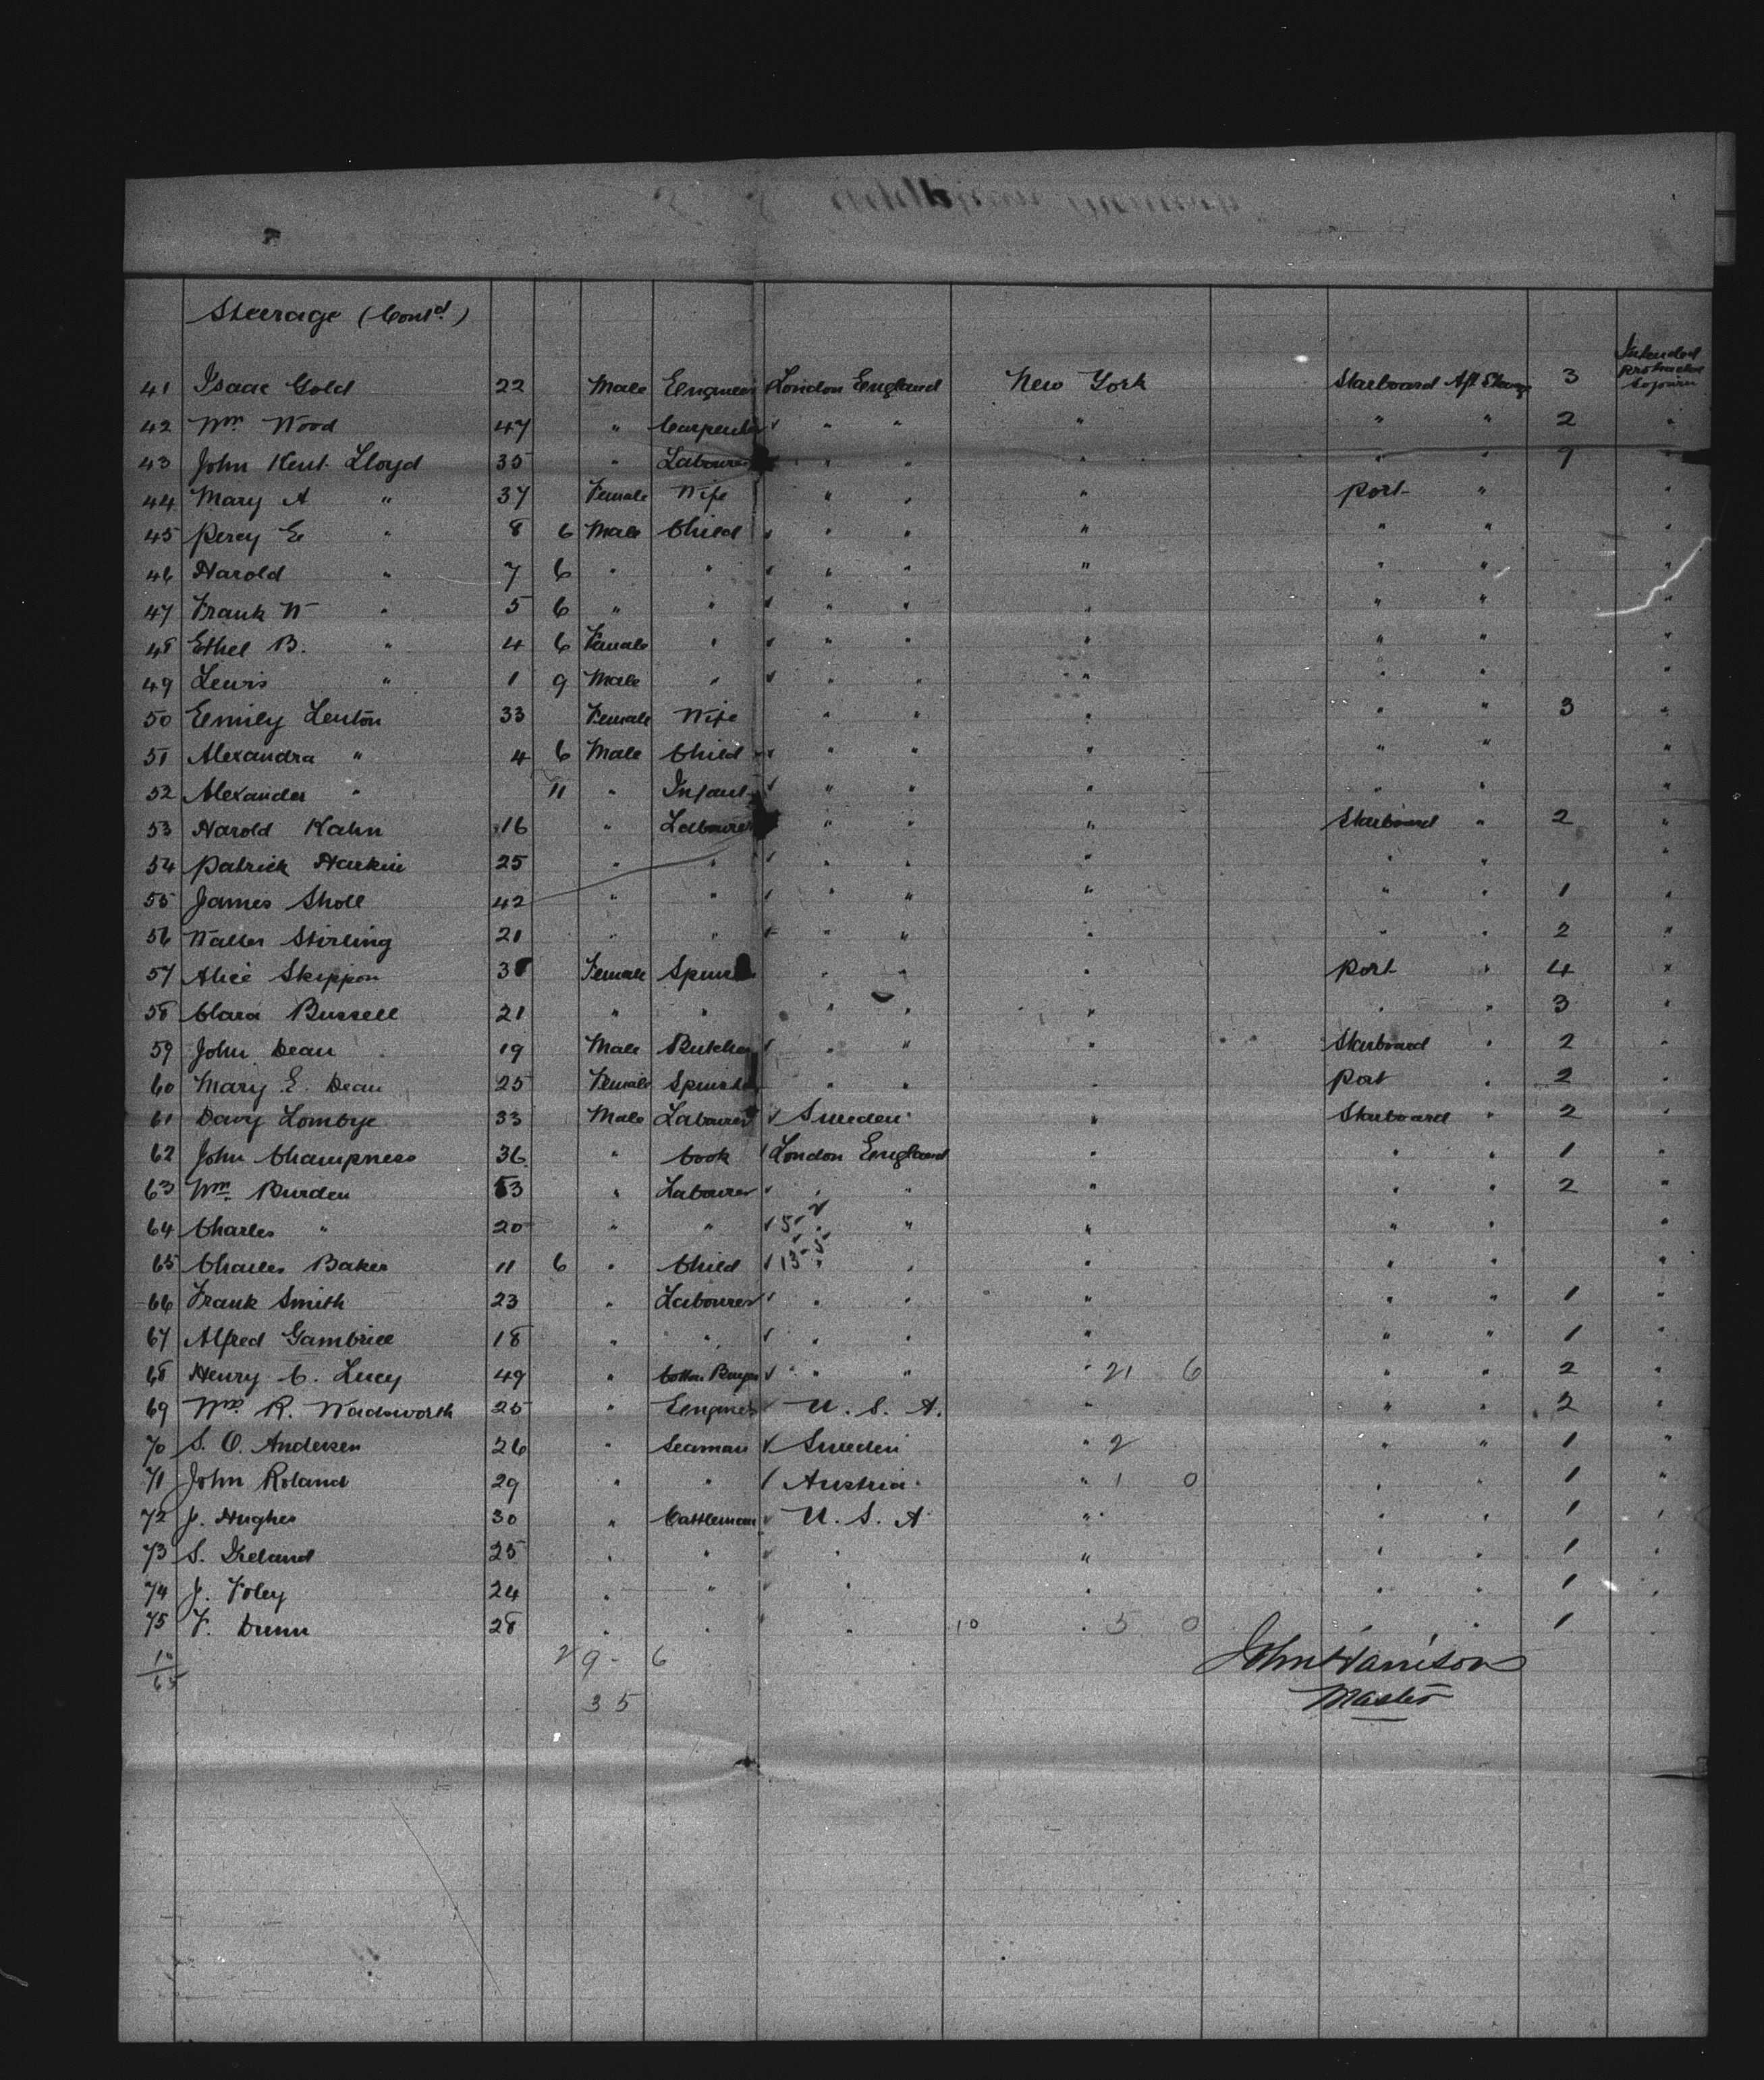 Steerage (Contd)
41 Isaac Gold 22 Male Engineer London England New York Starboard Aft Steerage 3 Intended Protracted Sojourn
42 Wm Wood 47 " Carpenter " " " " " 2 "
43 John Kent Lloyd 35 " Labourer " " " " " 9 "
44 Mary A " 37 Female Wife " " " Port " "
45 Percy E " 8 6 Male Child " " " " " "
46 Harold " 7 6 " " " " " " " "
47 Frank W " 5 6 " " " " " " " "
48 Ethel B. " 4 6 Female " " " " " " "
49 Lewis " 1 9 Male " " " " " " "
50 Emily Lenton 33 Female Wife " " " " " 3 "
51 Alexandra " 4 6 Male Child " " " " " "
52 Alexander " 11 " Infant " " " " " "
53 Harold Kahn 16 " Labourer " " " Starboard " 2 "
54 Patrick Harkin 25 " " " " " " " "
55 James Sholl 42 " " " " " " " 1 "
56 Walter Stirling 21 " " " " " " " 2 "
57 Alice Skippon Female " " " Port " 4 "
58 Clara Bussell 21 " " " " " " " 3 "
59 John Dean 19 Male Butcher " " " Starboard " 2 "
60 Mary E. Dean 25 Female Spinster " " " Port " 2 "
61 Davy Lombye 33 Male Labourer Sweden " Starboard " 2 "
62 John Champness 36 " Cook London England " " " 1 "
63 Wm Burden 53 " Labourer " " " " " 2 "
64 Charles " 20 " " 5 " " " " " "
65 Charles Baker 11 6 " Child 13 " " " " " "
66 Frank Smith 23 " Labourer " " " " " 1 "
67 Alfred Gambrill 18 " " " " " " " 1 "
68 Henry C. Lucy 49 " Cotton Buyer " " " 21 6 " " 2 "
69 Wm R. Wadsworth 25 " Engineer U. S. A. " " " 2 "
70 S. O. Andersen 26 " Seaman Sweden " 2 " " 1 "
71 John Roland 29 " " Austria " 1 0 " " 1 "
72 J. Hughes 30 " Cattleman U. S. A " " " 1 "
73 S. Ireland 25 " " " " " " 1 "
74 J. Foley 24 " " " " " " 1 "
75 F. Dunn 28 " " " 10 " 5 0 " " 1 "
10 29 - 6 John Harrison
65 35 Master